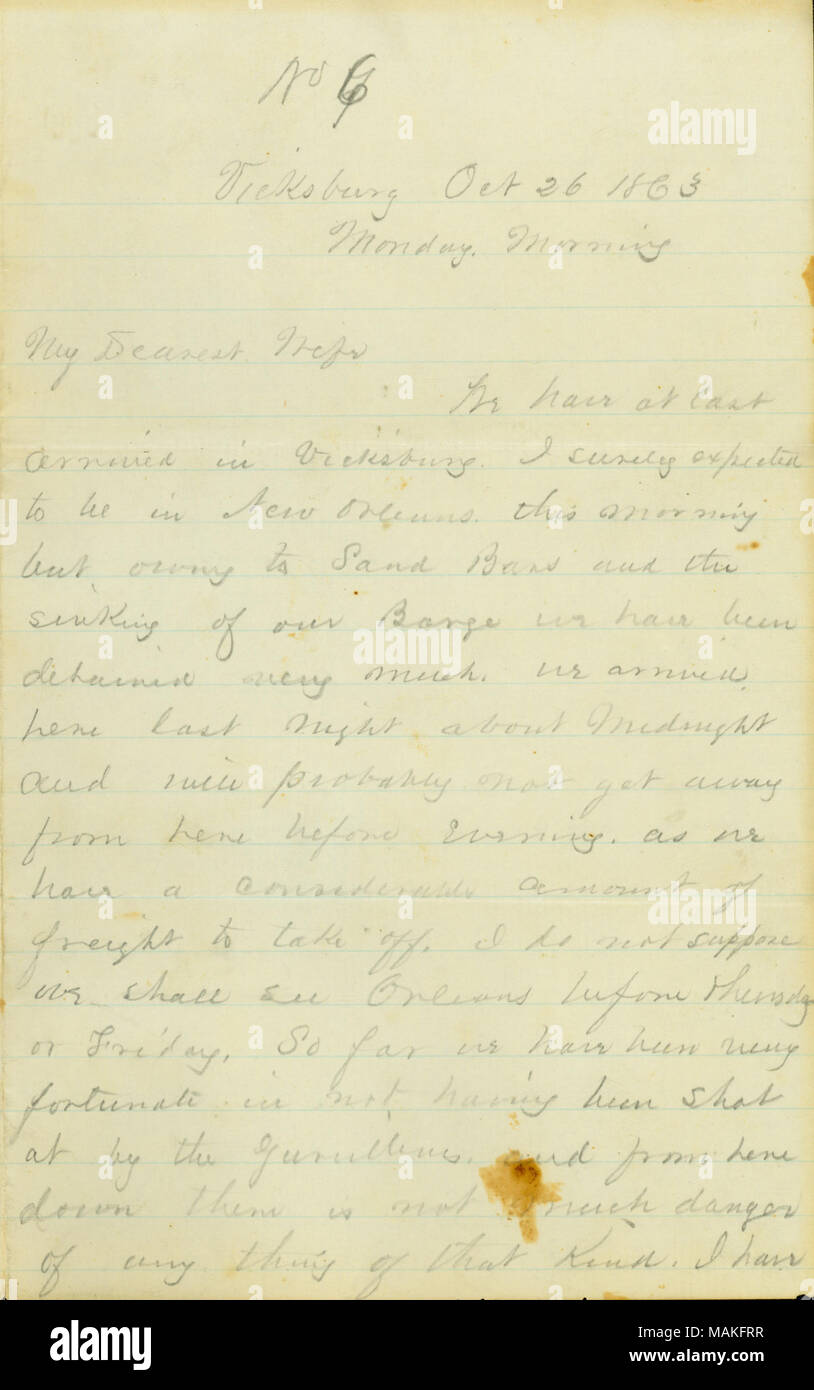 No 6
Vicksburg Oct 26 1863
Monday. Morning
My Dearest Wife
We have at last
arrived in Vicksburg. I surely expected
to be in New Orleans. this morning
but owing to Sand Bars and the
sinking of our Barge we have been
detained very much. we arrived
here last night about Midnight
and will probably not get away
from here before Evening. as we
have a considerable amount of
freight to take off. I do not suppose
we shall see Orleans before Thursday
or Friday. So far we have been very
fortunate in not having been shot
at by the Gurillous. and from here
down there is not much danger
of any thing of that Kind. I have
alamy
alamy
alamy
Image ID: MAKFRR
www.alamy.com